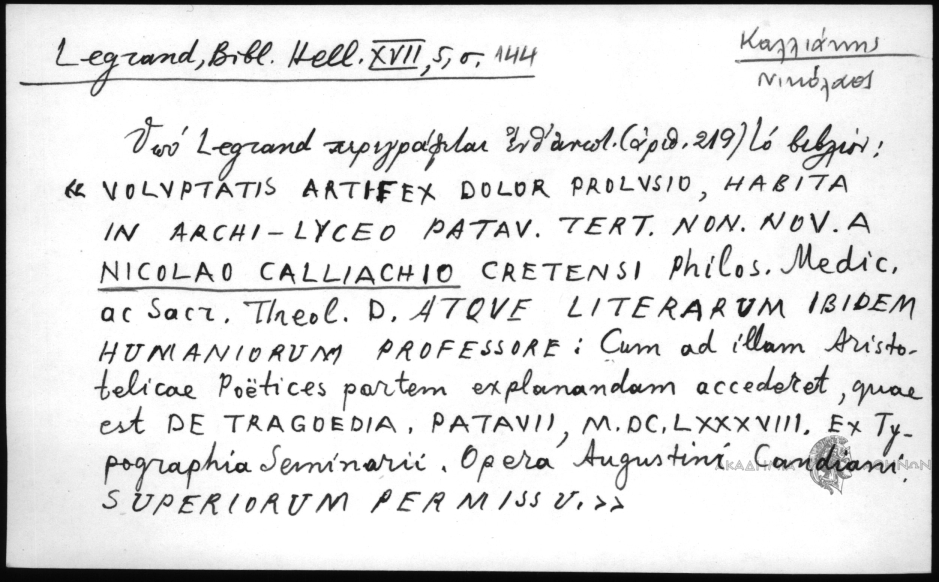 Legrand, Bibl. Hell. XVII, 5, σ. 144
Καλλιάκης
Νικόλαος
Ὑπό Legrand περιγράφεται ἐνθ' ἀνωτ. (ἀριθ. 219) τό βιβλίον:
« VOLVPTATIS ARTIFEX DOLOR PROLVSIO, HABITA
IN ARCHI-LYCEO PATAV. TERT. NON. NOV. A
NICOLAO CALLIACHIO CRETENSI Philos. Medic.
ac Sacr. Theol. D. ATQVE LITERARUM IBIDEM
HUMANIORUM PROFESSORE: Cum ad illam Aristo-
telicae Poëtices partem explanandam accederet, quae
est DE TRAGOEDIA. PATAVII, M.DC.LXXXVIII. Ex Ty-
pographia Seminarii. Opera Augustini Candiani.
SUPERIORUM PERMISSU. »
ΑΚΑΔΗΜΙΑ ΑΘΗΝΩΝ